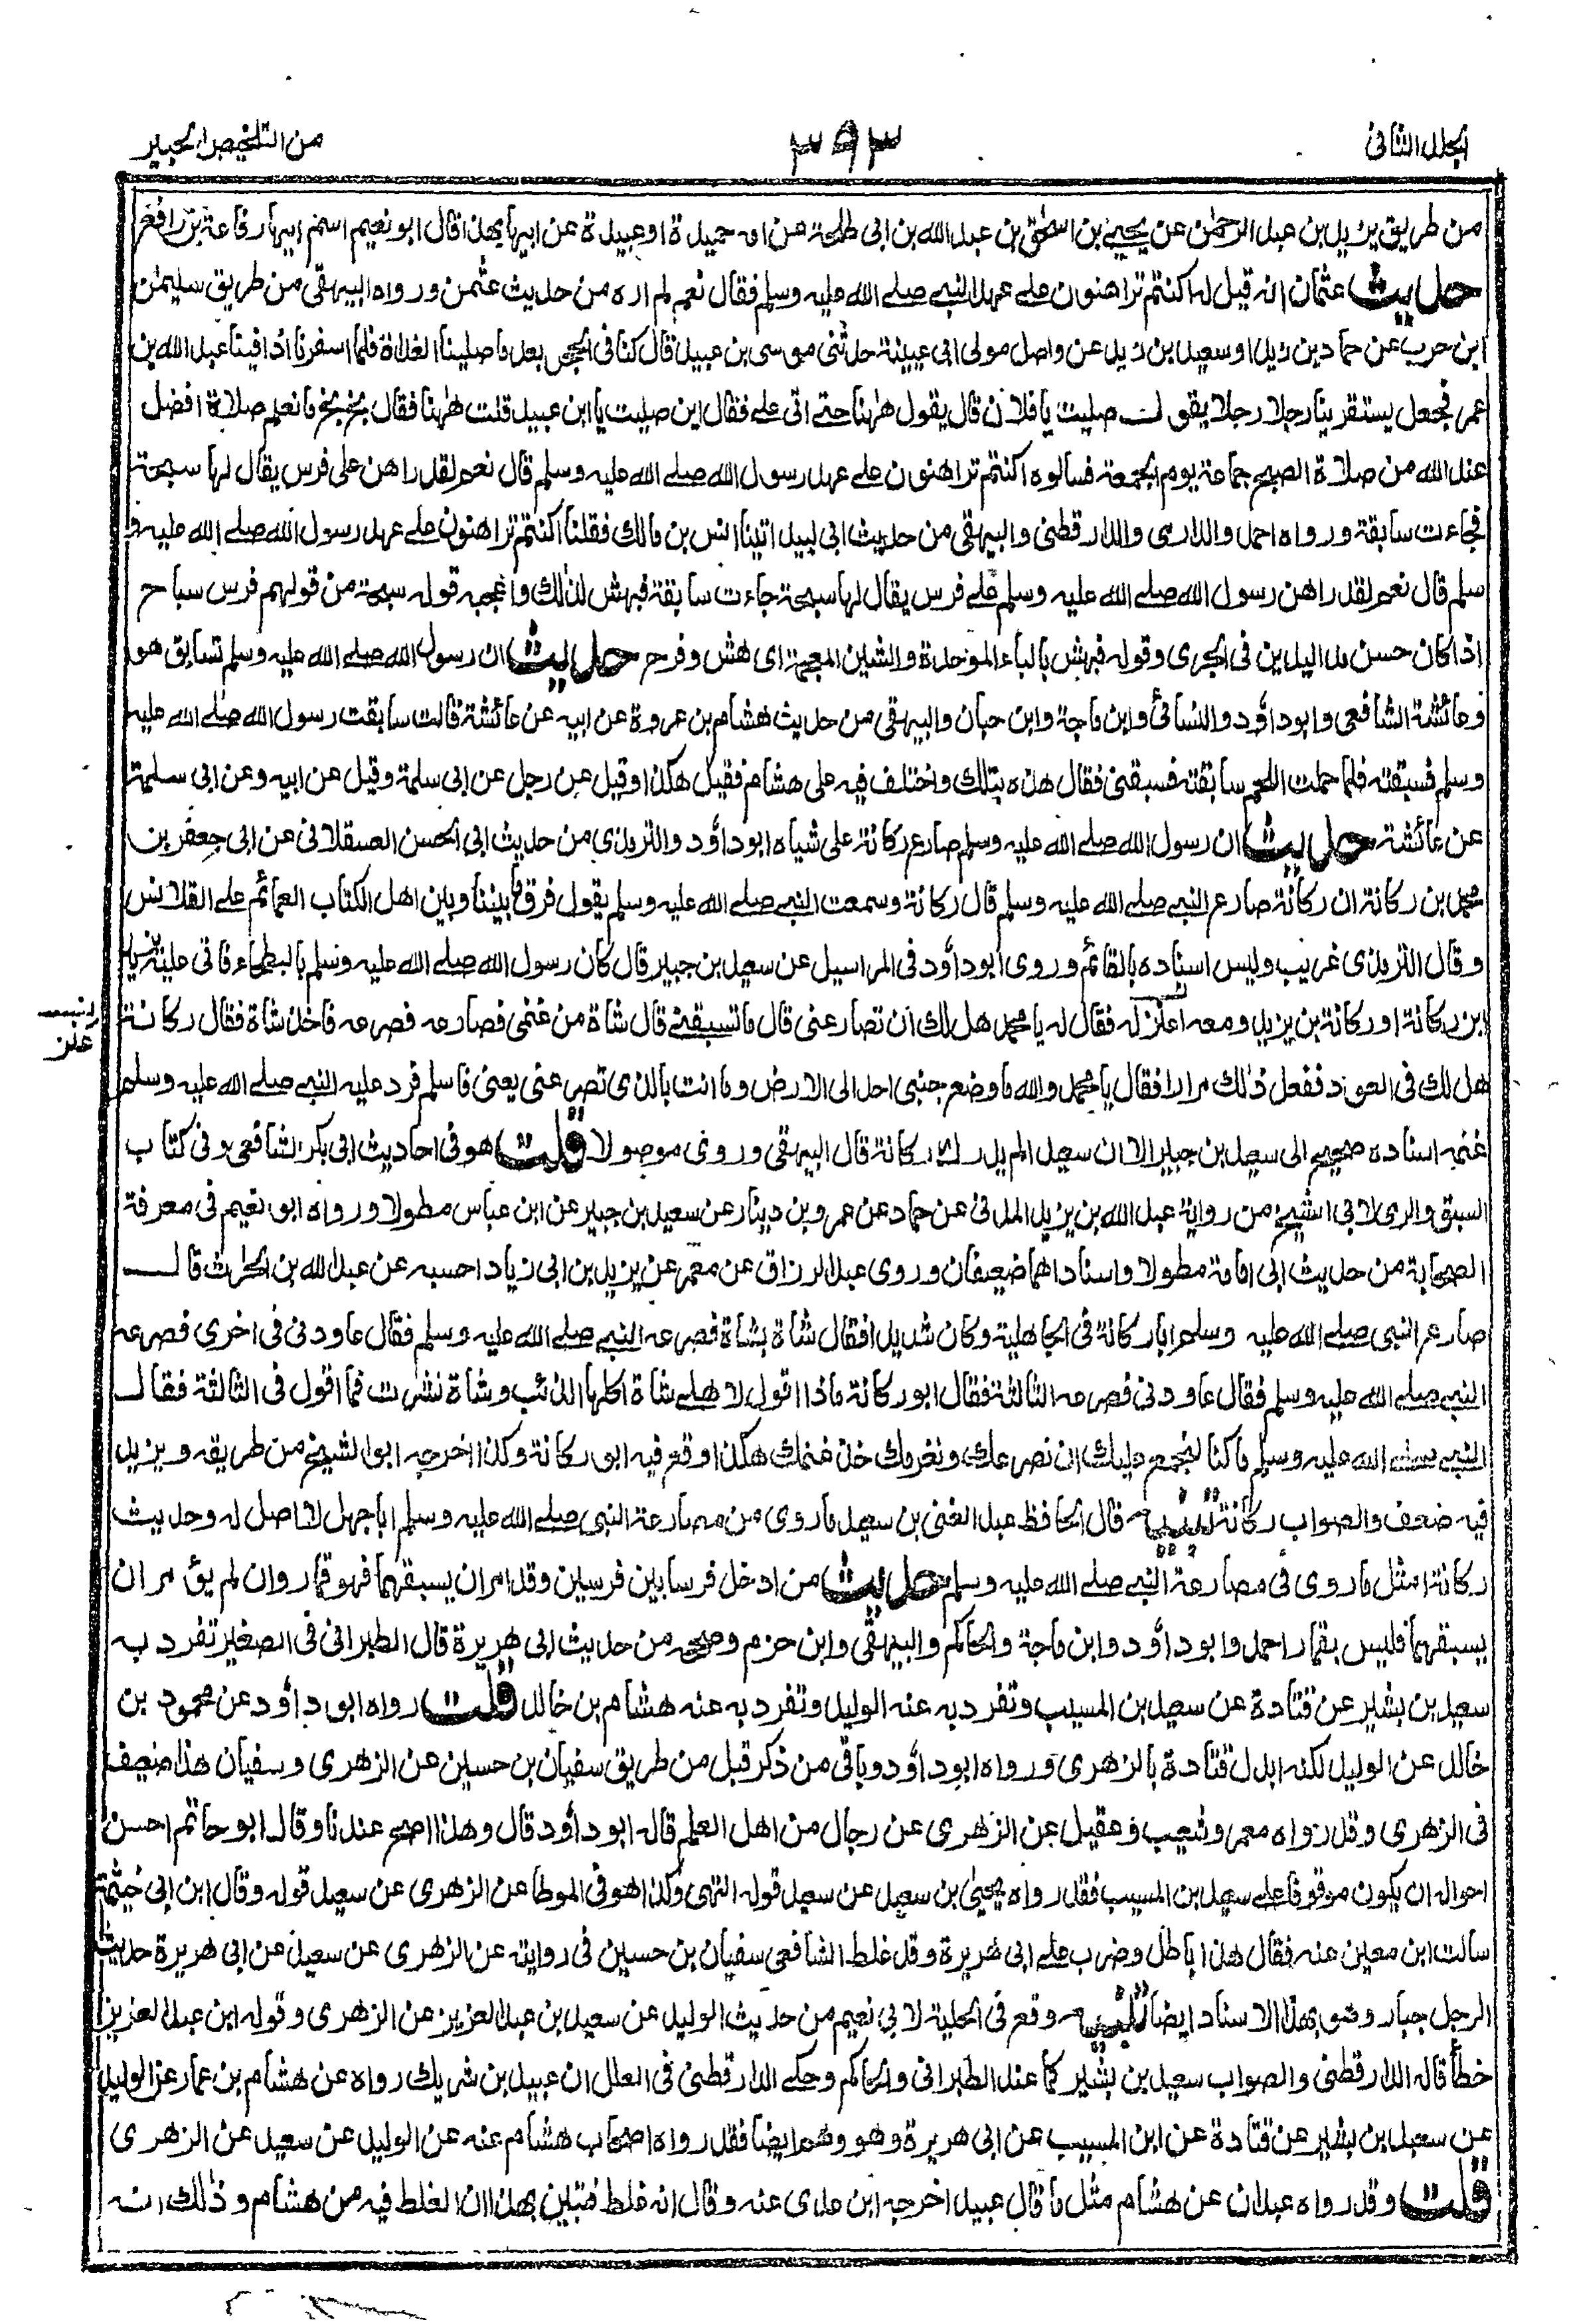 المجلد الثانى
٣٩٣
من التلخيص الحبير
من طريق يزيد بن عبد الرحمٰن عن يحيى بن اسحٰق بن عبد الله بن ابى طلحة عن امه حميدة او عبيدة عن ابيها بهذا قال ابو نعيم اسم ابيها رفاعة بن رافع
حديث عثمان انه قيل له اكنتم تراهنون على عهد النبي صلى الله عليه وسلم فقال نعم لم اره من حديث عثمن ورواه البيهقى من طريق سليمٰن
ابن حرب عن حماد بن زيد او سعيد بن زيد عن واصل مولى ابى عيينة حدثنى موسى بن عبيد قال كنا فى الحجر بعد ما صلينا الغداة فلما اسفرنا اذا فينا عبد الله بن
عمر فجعل يستقرينا رجلا رجلا يقول صليت يا فلان قال يقول هٰهنا حتى اتى على فقال اين صليت يا ابن عبيد قلت هٰهنا فقال بخ بخ ما نعلم صلاة افضل
عند الله من صلاة الصبح جماعة يوم الجمعة فسالوه اكنتم تراهنون على عهد رسول الله صلى الله عليه وسلم قال نعم لقد راهن على فرس يقال لها سبحة
فجاءت سابقة ورواه احمد والدارمى والدارقطنى والبيهقى من حديث ابى لبيد اتينا انس بن مالك فقلنا اكنتم تراهنون على عهد رسول الله صلى الله عليه و
سلم قال نعم لقد راهن رسول الله صلى الله عليه وسلم على فرس يقال لها سبحة جاءت سابقة فبهش لذٰلك واعجبه قوله سبحة من قولهم فرس سباح
اذا كان حسن مد اليدين فى الجرى وقوله فبهش بالباء الموحدة والشين المعجمة اى هش وفرح حديث ان رسول الله صلى الله عليه وسلم تسابق هو
وعائشة الشافعى وابو داؤد والنسائى وابن ماجة وابن حبان والبيهقى من حديث هشام بن عروة عن ابيه عن عائشة قالت سابقت رسول الله صلى الله عليه
وسلم فسبقته فلما حملت اللحم سابقته فسبقنى فقال هذه بتلك واختلف فيه على هشام فقيل هكذا وقيل عن رجل عن ابى سلمة وقيل عن ابيه وعن ابى سلمة
عن عائشة حديث ان رسول الله صلى الله عليه وسلم صارع ركانة على شياه ابو داؤد والترمذى من حديث ابى الحسن العسقلانى عن ابى جعفر بن
محمد بن ركانة ان ركانة صارع النبي صلى الله عليه وسلم قال ركانة وسمعت النبي صلى الله عليه وسلم يقول فرق ما بيننا وبين اهل الكتاب العمائم على القلانس
وقال الترمذى غريب وليس اسناده بالقائم وروى ابو داؤد فى المراسيل عن سعيد بن جبير قال كان رسول الله صلى الله عليه وسلم بالبطحاء فاتى عليه يزيد
ابن ركانة او ركانة بن يزيد ومعه اعنز له فقال له يا محمد هل لك ان تصارعنى قال ما تسبقنى قال شاة من غنمى فصارعه فصرعه فاخذ شاة فقال ركانة
عنز
هل لك فى العود ففعل ذٰلك مرارا فقال يا محمد والله ما وضع جنبى احد الى الارض وما انت بالذى تصرعنى يعنى فاسلم فرد عليه النبي صلى الله عليه وسلم
غنمه اسناده صحيح الى سعيد بن جبير الا ان سعيدا لم يدرك ركانة قال البيهقى وروى موصولا قلت هو فى احاديث ابى بكر الشافعى وفى كتاب
السبق والرمى لابى الشيخ من رواية عبد الله بن يزيد المدنى عن حماد عن عمرو بن دينار عن سعيد بن جبير عن ابن عباس مطولا ورواه ابو نعيم فى معرفة
الصحابة من حديث ابى امامة مطولا واسنادهما ضعيفان وروى عبد الرزاق عن معمر عن يزيد بن ابى زياد احسبه عن عبد الله بن الحٰرث قال
صارع النبى صلى الله عليه وسلم ابا ركانة فى الجاهلية وكان شديدا فقال شاة بشاة فصرعه النبي صلى الله عليه وسلم فقال عاودنى فى اخرى فصرعه
النبي صلى الله عليه وسلم فقال عاودنى فصرعه الثالثة فقال ابو ركانة ماذا اقول لاهلى شاة اكلها الذئب وشاة نشزت فما اقول فى الثالثة فقال
النبي صلى الله عليه وسلم ما كنا لنجمع عليك ان نصرعك ونغرمك خذ غنمك هكذا وقع فيه ابو ركانة وكذا اخرجه ابو الشيخ من طريقه ويزيد
فيه ضعف والصواب ركانة تنبيه قال الحافظ عبد الغنى بن سعيد ما روى من مصارعة النبى صلى الله عليه وسلم ابا جهل لا اصل له وحديث
ركانة امثل ما روى فى مصارعة النبي صلى الله عليه وسلم حديث من ادخل فرسا بين فرسين وقد امن ان يسبقهما فهو قمار وان لم يؤمن ان
يسبقهما فليس بقمار احمد وابو داؤد وابن ماجة والحاكم والبيهقى وابن حزم وصححه من حديث ابى هريرة قال الطبرانى فى الصغير تفرد به
سعيد بن بشير عن قتادة عن سعيد بن المسيب وتفرد به عنه الوليد وتفرد به عنه هشام بن خالد قلت رواه ابو داؤد عن محمود بن
خالد عن الوليد لكنه ابدل قتادة بالزهرى ورواه ابو داؤد وباقى من ذكر قبل من طريق سفيان بن حسين عن الزهرى وسفيان هذا ضعيف
فى الزهرى وقد رواه معمر وشعيب وعقيل عن الزهرى عن رجال من اهل العلم قاله ابو داؤد قال وهذا اصح عندنا وقال ابو حاتم احسن
احواله ان يكون موقوفا على سعيد بن المسيب فقد رواه يحيىٰ بن سعيد عن سعيد قوله انتهى وكذا هو فى الموطا عن الزهرى عن سعيد قوله وقال ابن ابى خيثمة
سالت ابن معين عنه فقال هذا باطل وضرب على ابى هريرة وقد غلط الشافعى سفيان بن حسين فى روايته عن الزهرى عن سعيد عن ابى هريرة حديث
الرجل جبار وهو بهذا الاسناد ايضا تنبيه وقع فى الحلية لابى نعيم من حديث الوليد عن سعيد بن عبد العزيز عن الزهرى وقوله ابن عبد العزيز
خطأ قاله الدارقطنى والصواب سعيد بن بشير كما عند الطبرانى والحاكم وحكى الدارقطنى فى العلل ان عبيد بن شريك رواه عن هشام بن عمار عن الوليد
عن سعيد بن بشير عن قتادة عن ابن المسيب عن ابى هريرة وهو وهم ايضا فقد رواه اصحاب هشام عنه عن الوليد عن سعيد عن الزهرى
قلت وقد رواه عبدان عن هشام مثل ما قال عبيد اخرجه ابن عدى عنه وقال انه غلط فتبين بهذا ان الغلط فيه من هشام وذٰلك انه